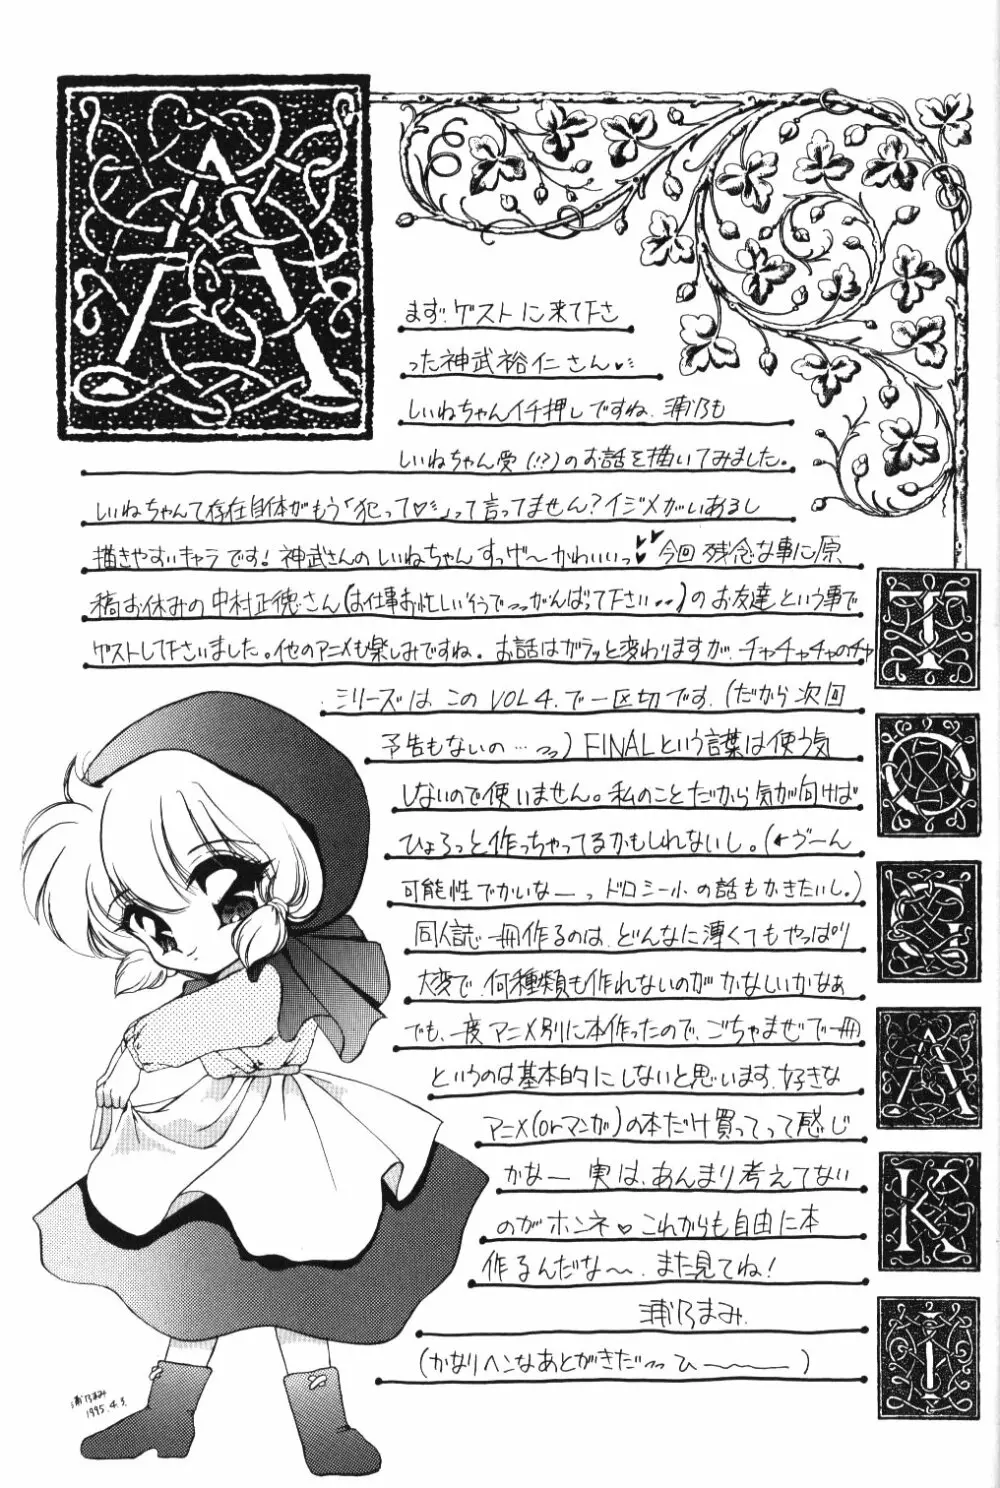 A
まず、ゲストに来て下さ
った神武裕仁さん
しいねちゃんイチ押しですね、浦乃も
しいねちゃん受(!?)のお話を描いてみました。
しいねちゃんて存在自体がもう「犯って♡」って言ってません?イジメがいあるし
描きやすいキャラです!神武さんのしいねちゃんすっげ〜かわいいっ♥♥今回残念な事に原
稿お休みの中村正徳さん(お仕事お忙しいそうで…がんばって下さい…)のお友達という事で
ゲストして下さいました。他のアニメも楽しみですね。お話はガラッと変わりますが、チャチャチャのチャ
シリーズはこのVOL4.で一区切です。(だから次回
予告もないの…)FINALという言葉は使う気
しないので使いません。私のことだから気が向けば
ひょろっと作っちゃってるかもしれないし。(←うーん
可能性でかいなーっドロシー小の話もかきたいし。)
同人誌一冊作るのは、どんなに薄くてもやっぱり
大変で、何種類も作れないのがかなしいかなぁ
でも、一度アニメ別に本作ったので、ごちゃまぜで一冊
というのは基本的にしないと思います。好きな
アニメ(orマンガ)の本だけ買ってって感じ
かなー 実は、あんまり考えてない
のがホンネ♡これからも自由に本
作るんだな〜。また見てね!
浦乃まみ
(かなりヘンなあとがきだ…ひ〜)
浦乃まみ
1995.4.3.
T
O
G
A
K
I